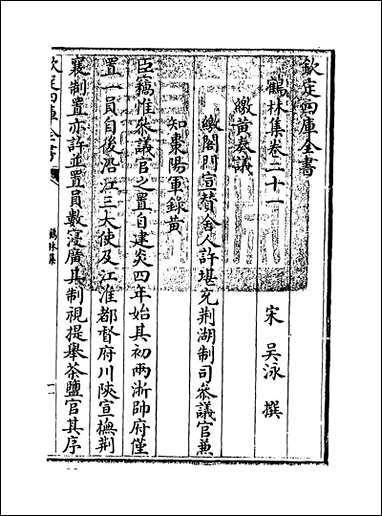 欽定四庫全書
鶴林集卷二十一
宋 吳泳 撰
繳黄奏議
繳閤門宣贊舍人許堪充荆湖制司叅議官兼
知棗陽軍錄黄
臣竊惟叅議官之置自建炎四年始其初兩浙帥府僅
置一員自後沿江三大使及江淮都督府川陜宣撫荆
襄制置亦許並置員數寖廣其制視提舉茶鹽官其序
欽定四庫全書
鶴林集
一